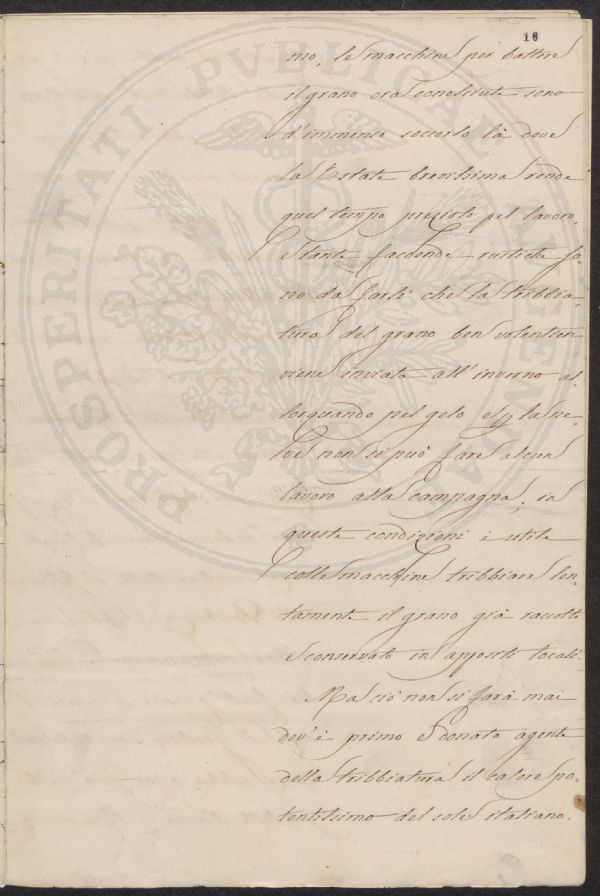 16
mo, le macchine per battere
il grano ora conosciute sono
d'immenso soccorso là dove
la Estate brevissima rende
quel tempo prezioso pel lavoro.
E tante faccende rustiche so-
no da farsi che la tribbia-
tura del grano ben volentieri
viene inviata all'inverno al-
lorquando pel gelo e la ne-
ve non si può fare alcun
lavoro alla campagna; in
queste condizioni è utile
colle macchine tribbiare len-
tamente il grano già raccolto
e conservato in appositi locali.
Ma ciò non si farà mai
dov'è primo e donato agente
della tribbiatura il calore po-
tentissimo del sole italiano.
PROSPERITATI PVBLICAE AVGENDAE